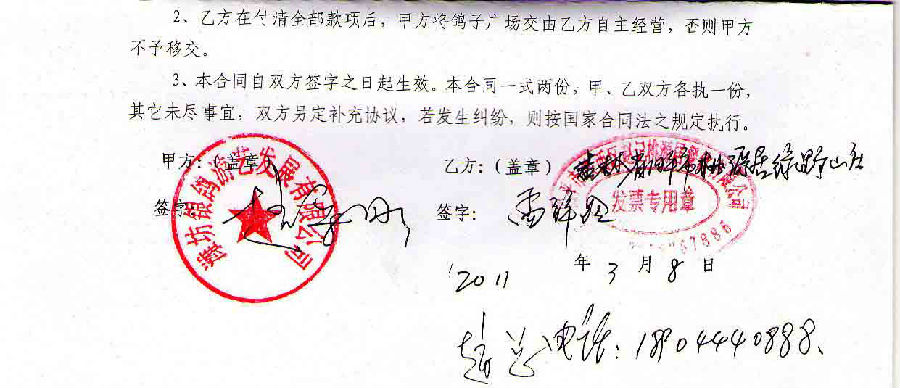 2、乙方在付清全部款项后，甲方将鸽子广场交由乙方自主经营，否则甲方
不予移交。
3、本合同自双方签字之日起生效。本合同一式两份，甲、乙双方各执一份，
其它未尽事宜，双方另定补充协议，若发生纠纷，则按国家合同法之规定执行。
甲方：（盖章）
潍坊银鸽旅游发展有限公司
签字：
乙方：（盖章）
发票专用章
签字：
2011 年 3 月 8 日
赵总电话：18904440888.